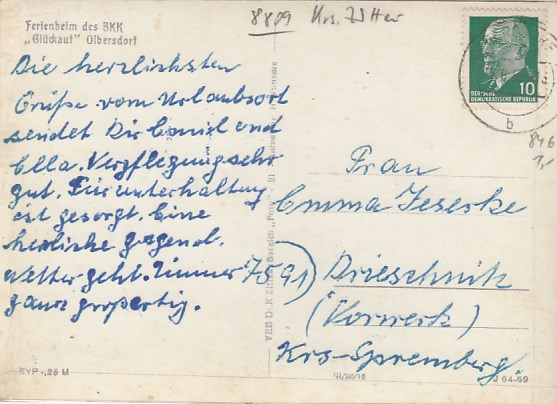 8809 Krs. Zitter
Ferienheim des BKK
„Glückauf“ Olbersdorf
Die herzlichsten
Grüße vom Urlaubsort
sendet Dir Emil und
Ella. Verpflegung sehr
gut. Für unterhaltung
ist gesorgt. Eine
herliche gegend.
wetter geht. Zimmer
ganz großertig.
DEUTSCHE
DEMOKRATISCHE REPUBLIK
10
b
846
1,-
Frau
Emma Jeserke
7591) Drieschnitz
(Vorwerk)
Krs-Spremberg.
VEB DLK
EVP -,25 M
J 64-69